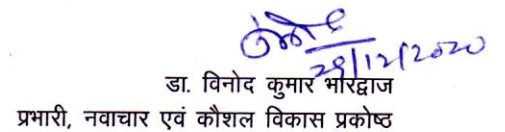 28/12/2020
डा. विनोद कुमार भारद्वाज
प्रभारी, नवाचार एवं कौशल विकास प्रकोष्ठ